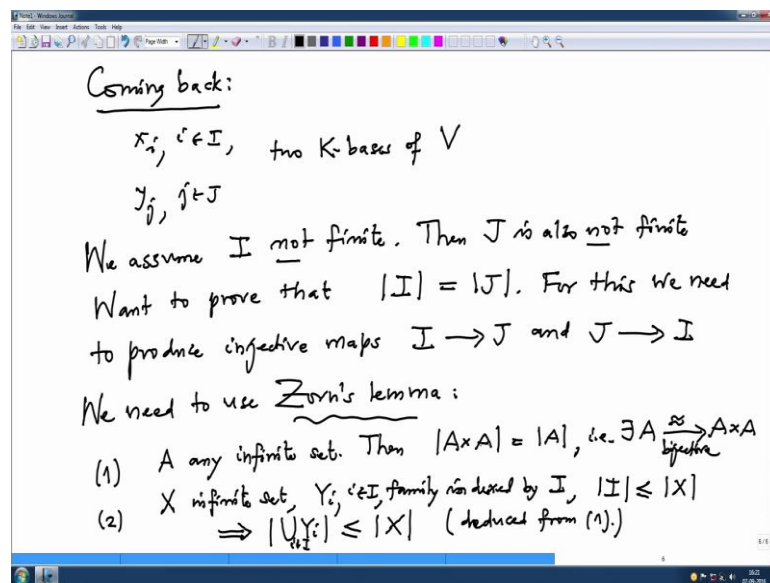 Note1 - Windows Journal
File Edit View Insert Actions Tools Help
Page Width
Coming back:
x_i, i∈I, two K-bases of V
y_j, j∈J
We assume I not finite. Then J is also not finite
Want to prove that |I| = |J|. For this we need
to produce injective maps I → J and J → I
We need to use Zorn's lemma:
(1) A any infinite set. Then |A×A| = |A|, i.e. ∃ A ≈→ A×A
bijective
(2) X infinite set, Y_i, i∈I, family indexed by I, |I| ≤ |X|
⟹ |⋃_{i∈I} Y_i| ≤ |X| (deduced from (1).)
6/6
6
16:21